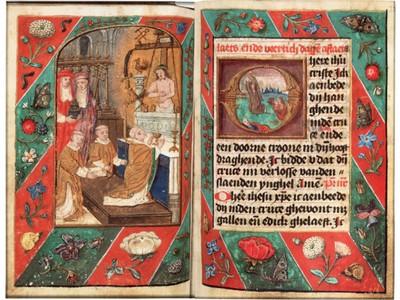 iaers ende veertich daghē aflaets
here ihū
criste Ich
aenbede
dij han
ghende
indē cru
ce ende
een doorne croone in dijn hooft
draghende. Ic bidde v dat dijn
cruce mi verlosse vanden
slaenden ynghel Amē. Pr nr
O here ihesu xpē ic aenbede
dij inden cruce ghewont mz
gallen eñ edick ghelaeft. Ic